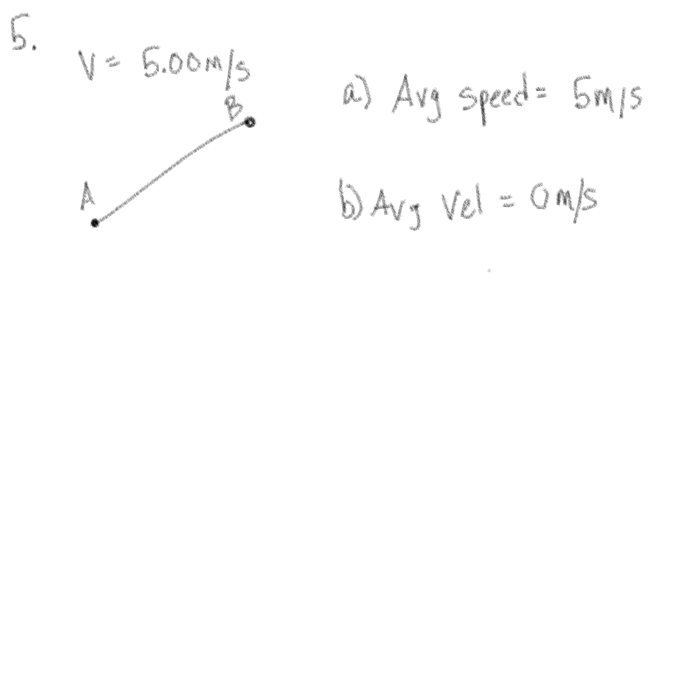 5.
V = 5.00m/s
B
A
a) Avg speed = 5m/s
b) Avg Vel = 0m/s